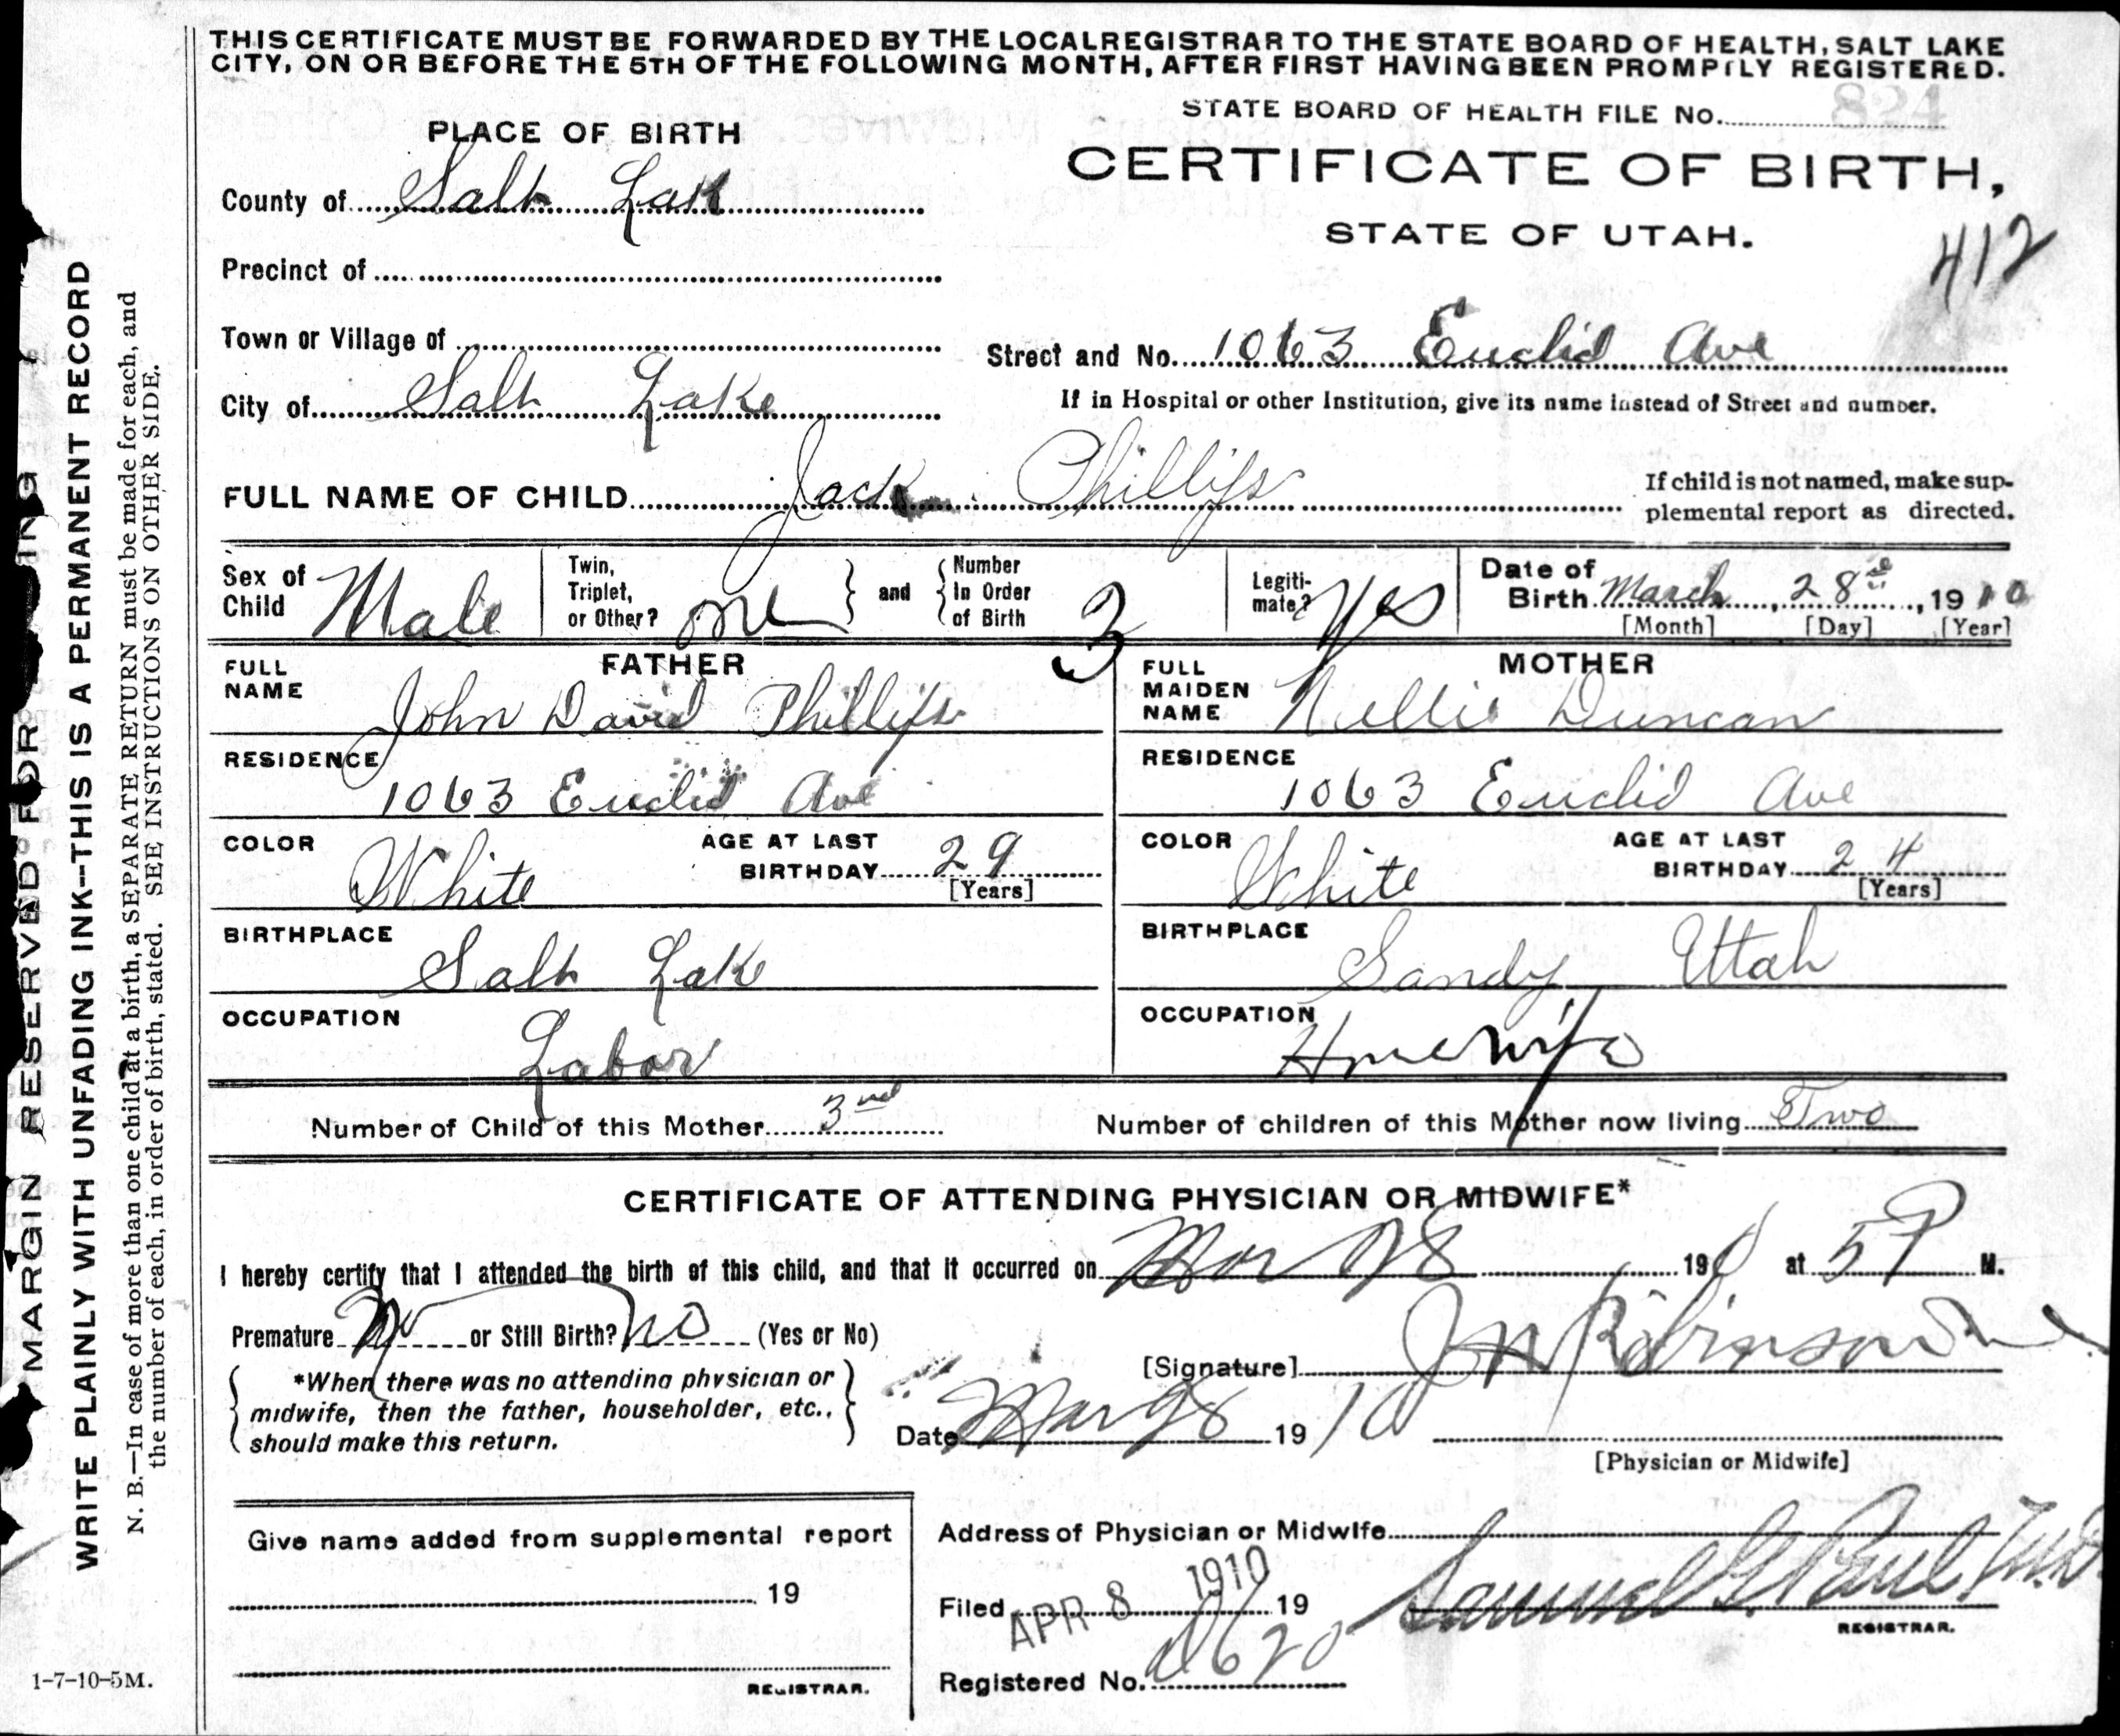 THIS CERTIFICATE MUST BE FORWARDED BY THE LOCAL REGISTRAR TO THE STATE BOARD OF HEALTH, SALT LAKE
CITY, ON OR BEFORE THE 5TH OF THE FOLLOWING MONTH, AFTER FIRST HAVING BEEN PROMPTLY REGISTERED.
STATE BOARD OF HEALTH FILE No. 824
PLACE OF BIRTH
CERTIFICATE OF BIRTH,
County of Salt Lake
STATE OF UTAH.
412
Precinct of
Town or Village of
Street and No. 1063 Euclid Ave
City of Salt Lake
If in Hospital or other Institution, give its name instead of Street and number.
FULL NAME OF CHILD Jack Phillips
If child is not named, make sup-
plemental report as directed.
Sex of Child Male
Twin, Triplet, or Other? one and Number In Order of Birth 3
Legiti-mate? Yes
Date of Birth March, 28, 1910
[Month] [Day] [Year]
FATHER
FULL NAME John David Phillips
RESIDENCE
1063 Euclid Ave
COLOR White AGE AT LAST BIRTHDAY 29
[Years]
BIRTHPLACE
Salt Lake
OCCUPATION
Labor
MOTHER
FULL MAIDEN NAME Nellie Duncan
RESIDENCE
1063 Euclid Ave
COLOR White AGE AT LAST BIRTHDAY 24
[Years]
BIRTHPLACE
Sandy Utah
OCCUPATION
Housewife
Number of Child of this Mother 3nd Number of children of this Mother now living Two
CERTIFICATE OF ATTENDING PHYSICIAN OR MIDWIFE*
I hereby certify that I attended the birth of this child, and that it occurred on Mar 28 1910 at 5 P M.
Premature No or Still Birth? no (Yes or No)
[Signature] Robinson
*When there was no attending physician or
midwife, then the father, householder, etc.,
should make this return.
Date Mar 28 1910
[Physician or Midwife]
Give name added from supplemental report
19
REGISTRAR.
Address of Physician or Midwife
Filed APR 8 1910 19 Samuel G. Paul M.D.
REGISTRAR.
Registered No.
1-7-10-5M.
MARGIN RESERVED FOR
WRITE PLAINLY WITH UNFADING INK—THIS IS A PERMANENT RECORD
N. B.—In case of more than one child at a birth, a SEPARATE RETURN must be made for each, and
the number of each, in order of birth, stated. SEE INSTRUCTIONS ON OTHER SIDE.